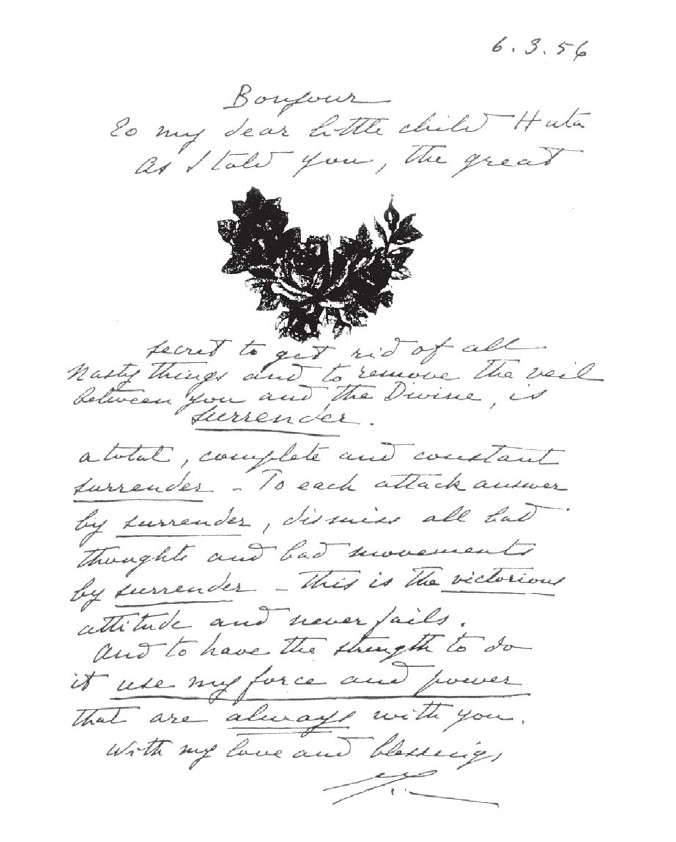 6.3.56
Bonjour
To my dear little child Huta
As I told you, the great
secret to get rid of all
nasty things and to remove the veil
between you and the Divine, is
surrender.
a total, complete and constant
surrender – To each attack answer
by surrender, dismiss all bad
thoughts and bad movements
by surrender – this is the victorious
attitude and never fails.
And to have the strength to do
it use my force and power
that are always with you.
With my love and blessings